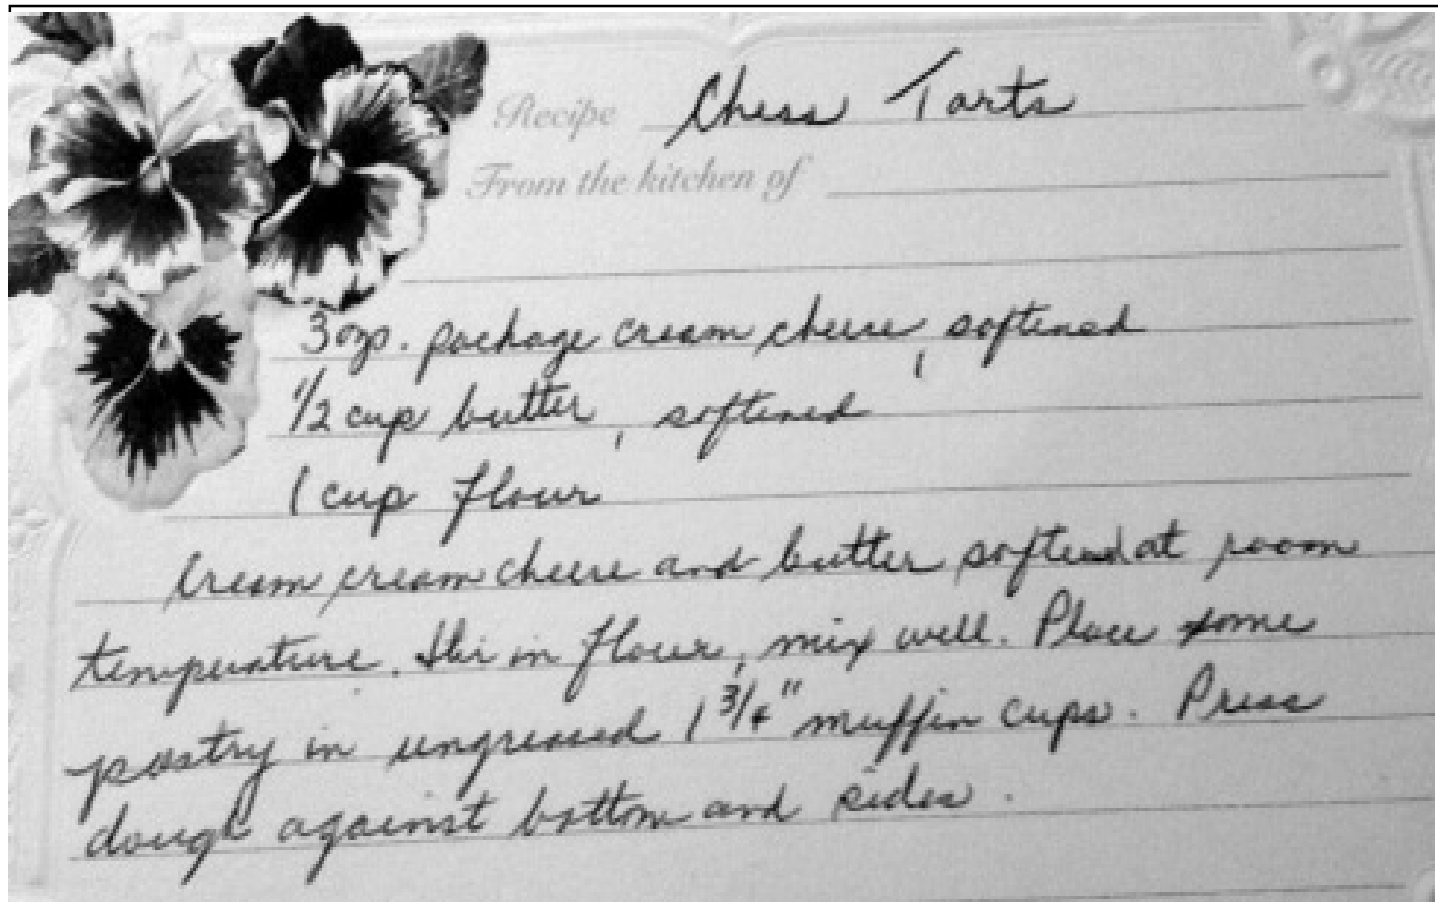 Recipe Chess Tarts
From the kitchen of
3 ozs. package cream cheese, softened
1/2 cup butter, softened
1 cup flour
Cream cream cheese and butter softened at room
temperature. Stir in flour, mix well. Place some
pastry in ungreased 1 3/4" muffin cups. Press
dough against bottom and sides.